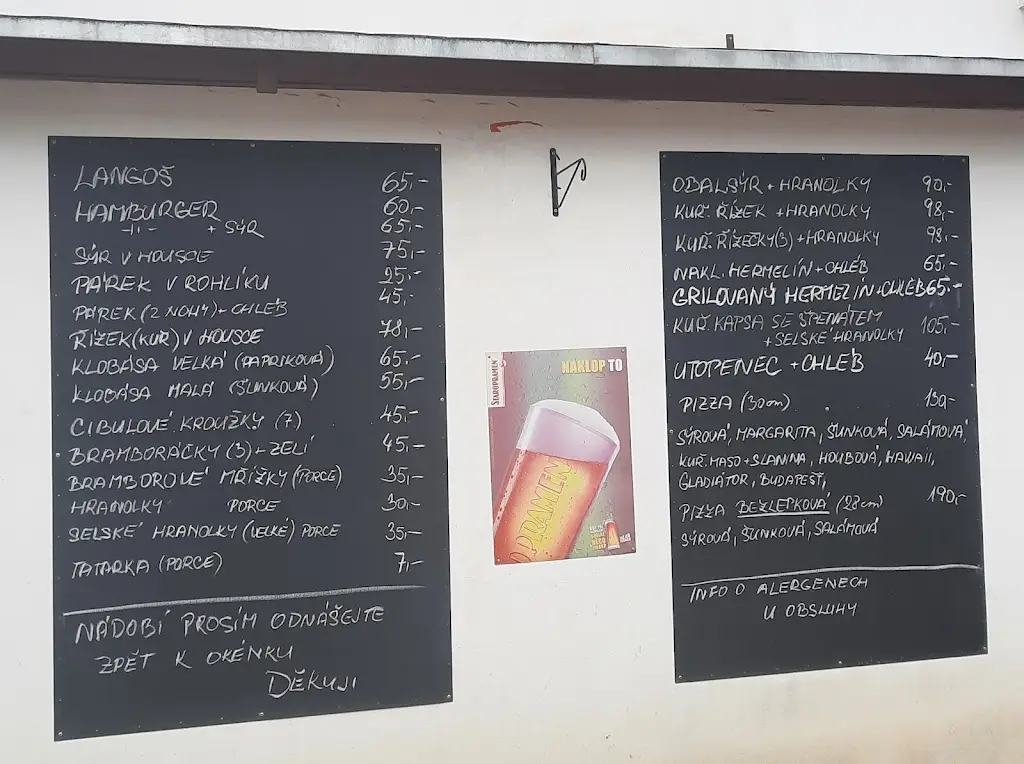 LANGOŠ 65,-
HAMBURGER 60,-
-II- + SÝR 65,-
SÝR V HOUSCE 75,-
PÁREK V ROHLÍKU 25,-
PÁREK (2 NOHY) + CHLÉB 45,-
ŘÍZEK (KUŘ) V HOUSCE 78,-
KLOBÁSA VELKÁ (PAPRIKOVÁ) 65,-
KLOBÁSA MALÁ (ŠUNKOVÁ) 55,-
CIBULOVÉ KROUŽKY (7) 45,-
BRAMBORÁČKY (3) + ZELÍ 45,-
BRAMBOROVÉ MŘÍŽKY (PORCE) 35,-
HRANOLKY PORCE 30,-
SELSKÉ HRANOLKY (VELKÉ) PORCE 35,-
TATARKA (PORCE) 7,-
NÁDOBÍ PROSÍM ODNÁŠEJTE
ZPĚT K OKÉNKU
DĚKUJI
STAROPRAMEN
NÁKLOP TO
OPRAMEN
OBAL.SÝR + HRANOLKY 90,-
KUŘ. ŘÍZEK + HRANOLKY 98,-
KUŘ. ŘÍZEČKY (3) + HRANOLKY 98,-
NAKL. HERMELÍN + CHLÉB 65,-
GRILOVANÝ HERMELÍN + CHLÉB 65,-
KUŘ. KAPSA SE ŠPENÁTEM
+ SELSKÉ HRANOLKY 105,-
UTOPENEC + CHLÉB 40,-
PIZZA (30cm) 130,-
SÝROVÁ, MARGARITA, ŠUNKOVÁ, SALÁMOVÁ,
KUŘ. MASO + SLANINA, HOUBOVÁ, HAWAII,
GLADIÁTOR, BUDAPEŠŤ,
PIZZA BEZLEPKOVÁ (28cm) 190,-
SÝROVÁ, ŠUNKOVÁ, SALÁMOVÁ
INFO O ALERGENECH
U OBSLUHY